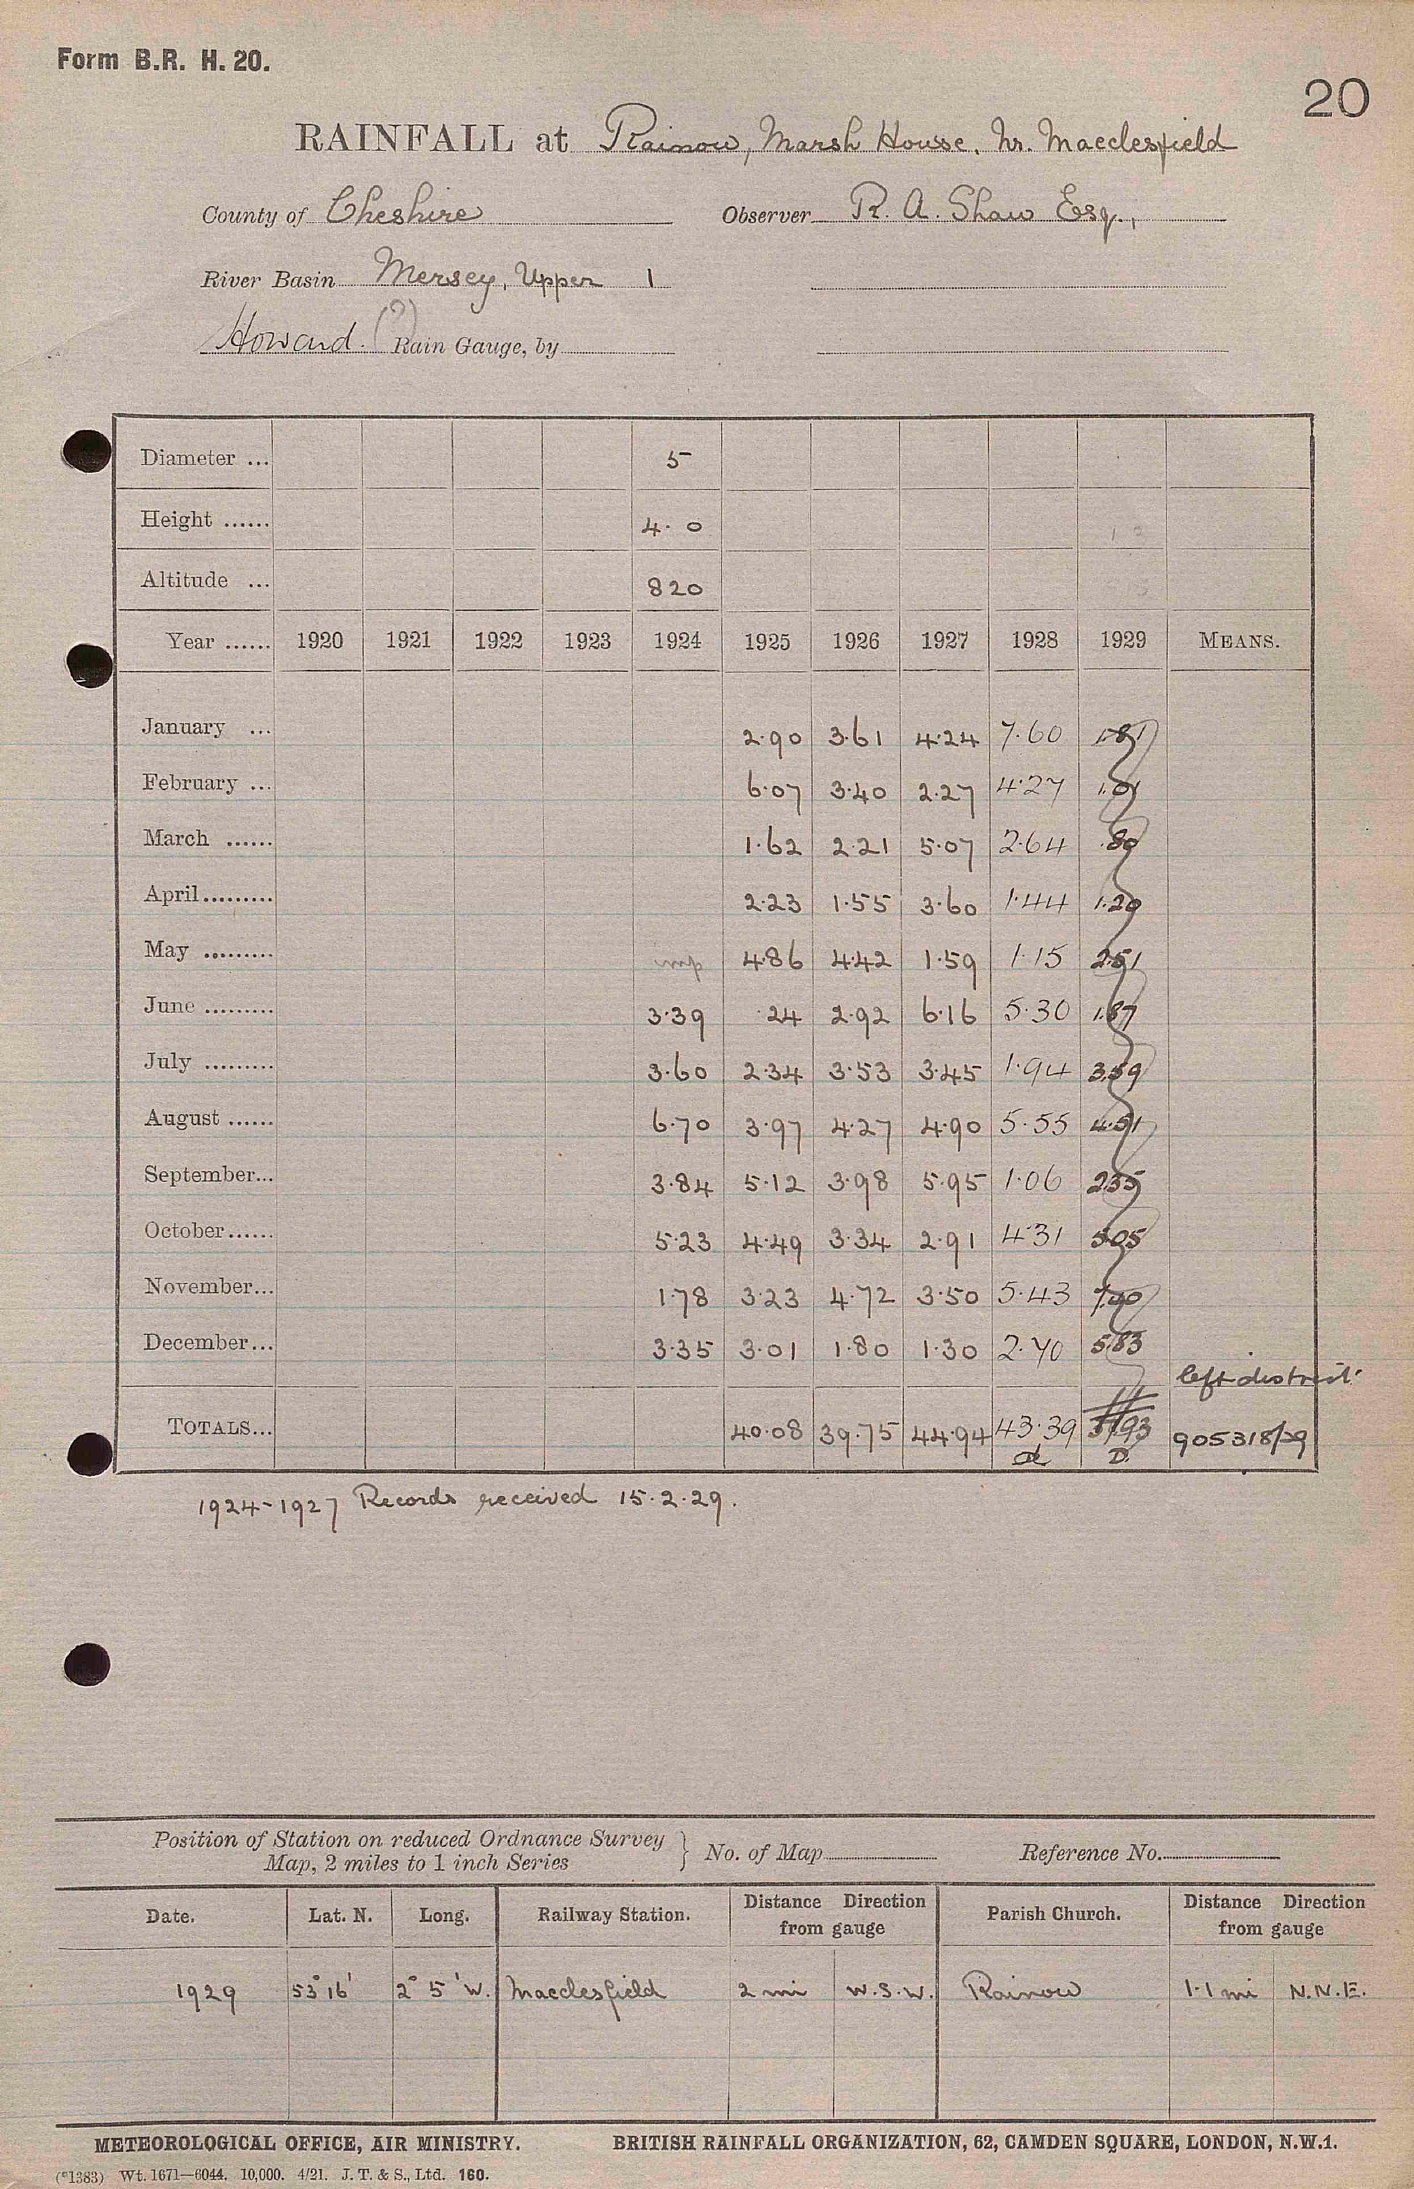 Form B.R. H. 20.
20
RAINFALL at Rainow, Marsh House, Nr. Macclesfield
County of Cheshire Observer R. A. Shaw Esq.,
River Basin Mersey, Upper 1
Howard. (?) Rain Gauge, by
Diameter ... 5
Height ...... 4. 0
Altitude ... 820
Year ...... 1920 1921 1922 1923 1924 1925 1926 1927 1928 1929 MEANS.
January ... 2.90 3.61 4.24 7.60 1.81
February ... 6.07 3.40 2.27 4.27 1.01
March ...... 1.62 2.21 5.07 2.64 .80
April ......... 2.23 1.55 3.60 1.44 1.20
May ......... imp 4.86 4.42 1.59 1.15 2.51
June ......... 3.39 .24 2.92 6.16 5.30 1.87
July ......... 3.60 2.34 3.53 3.45 1.94 3.59
August ...... 6.70 3.97 4.27 4.90 5.55 4.51
September... 3.84 5.12 3.98 5.95 1.06 2.35
October...... 5.23 4.49 3.34 2.91 4.31 5.05
November... 1.78 3.23 4.72 3.50 5.43 7.40
December... 3.35 3.01 1.80 1.30 2.70 5.83
left district
TOTALS... 40.08 39.75 44.94 43.39 37.93 905318/29
D.
1924-1927 Records received 15.2.29.
Position of Station on reduced Ordnance Survey
Map, 2 miles to 1 inch Series } No. of Map Reference No.
Date. Lat. N. Long. Railway Station. Distance Direction from gauge Parish Church. Distance Direction from gauge
1929 53° 16' 2° 5' W. Macclesfield 2 mi W.S.W. Rainow 1.1 mi N.N.E.
METEOROLOGICAL OFFICE, AIR MINISTRY. BRITISH RAINFALL ORGANIZATION, 62, CAMDEN SQUARE, LONDON, N.W.1.
(*1383) Wt. 1671—6044. 10,000. 4/21. J. T. & S., Ltd. 160.